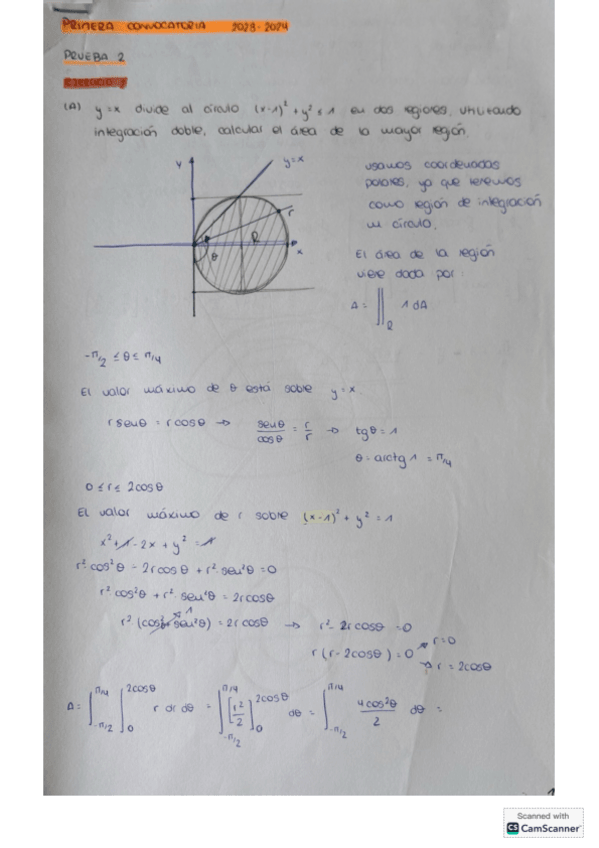 PRIMERA CONVOCATORIA 2023-2024
PRUEBA 2
(A) y=x divide al círculo (x-1)² + y² ≤ 1 en dos regiones, utilizando
integración doble, calcular el área de la mayor región.
y
y=x
r
R
P
x
θ
usamos coordenadas
polares, ya que tenemos
como región de integración
un círculo.
El área de la región
viene dada por:
A = ∬_R 1 dA
-π/2 ≤ θ ≤ π/4
El valor máximo de θ está sobre y=x.
r senθ = r cosθ → senθ/cosθ = r/r → tgθ = 1
θ = arctg 1 = π/4
0 ≤ r ≤ 2cosθ
El valor máximo de r sobre (x-1)² + y² = 1
x² + 1 - 2x + y² = 1
r² cos²θ - 2r cosθ + r² sen²θ = 0
r² cos²θ + r² sen²θ = 2r cosθ
r² (cos²θ + sen²θ) = 2r cosθ → r² - 2r cosθ = 0
1
r (r - 2cosθ) = 0
r = 0
r = 2cosθ
A = ∫_{-π/2}^{π/4} ∫_0^{2cosθ} r dr dθ = ∫_{-π/2}^{π/4} [r²/2]_0^{2cosθ} dθ = ∫_{-π/2}^{π/4} 4cos²θ/2 dθ =
1
Scanned with
CS CamScanner